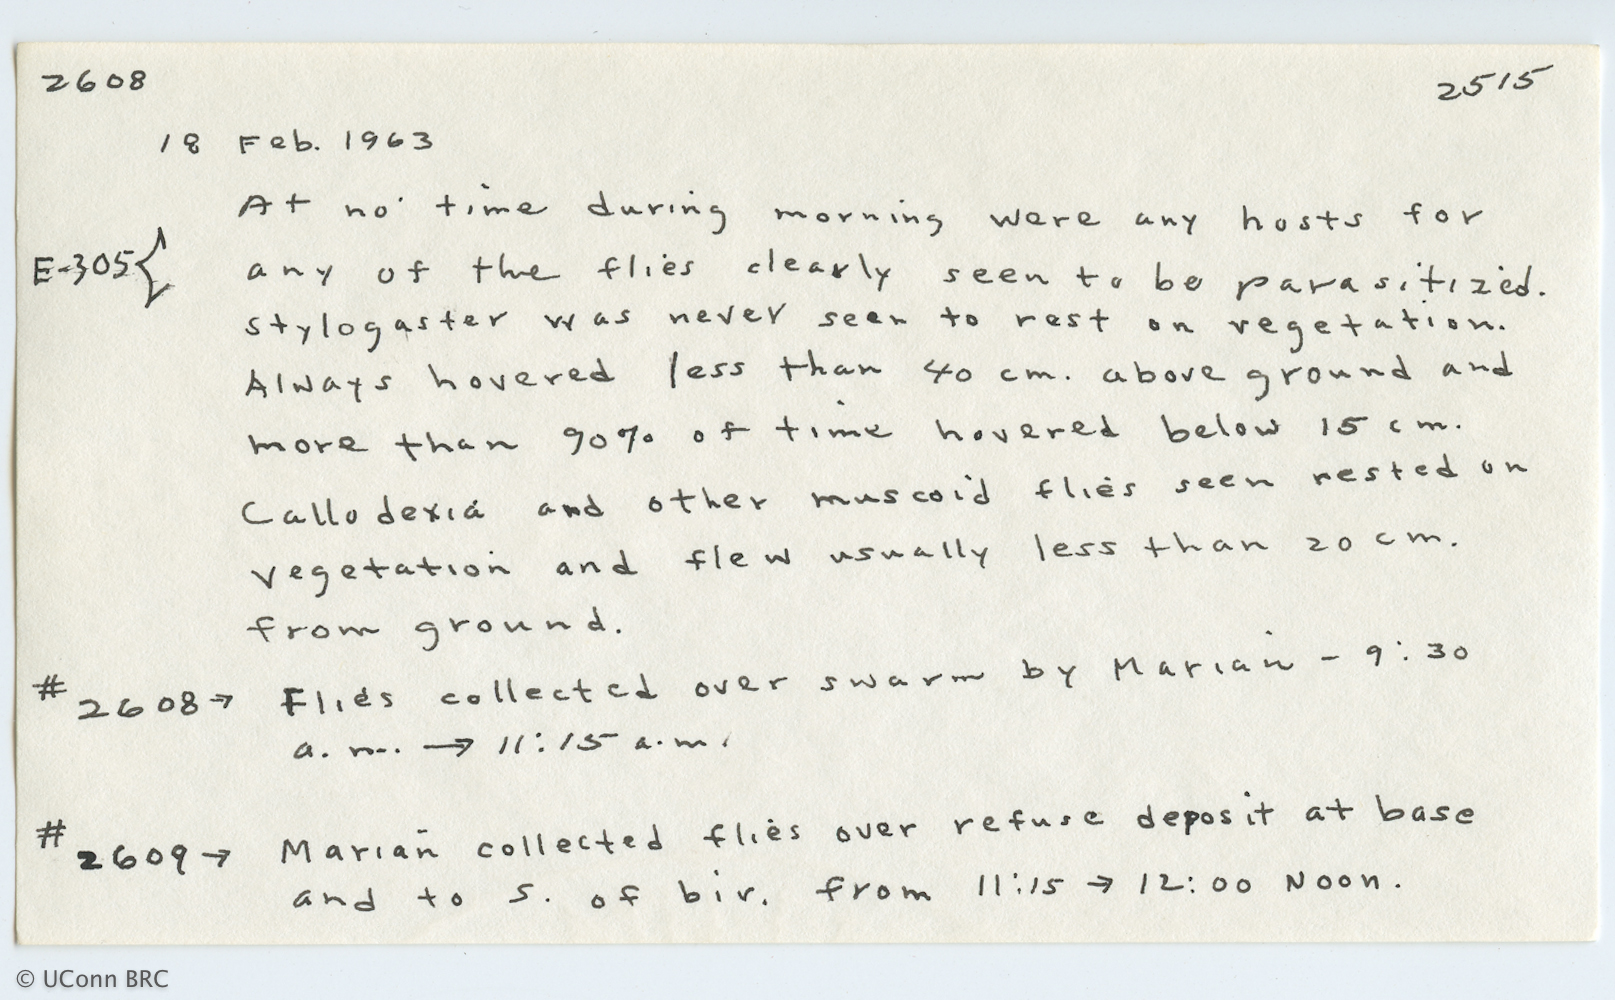 2608
2515
18 Feb. 1963
At no time during morning were any hosts for
E-305{ any of the flies clearly seen to be parasitized.
Stylogaster was never seen to rest on vegetation.
Always hovered less than 40 cm. above ground and
more than 90% of time hovered below 15 cm.
Callodexia and other muscoid flies seen rested on
vegetation and flew usually less than 20 cm.
from ground.
# 2608→ Flies collected over swarm by Marian - 9:30
a.m. → 11:15 a.m.
# 2609→ Marian collected flies over refuse deposit at base
and to S. of biv. from 11:15 → 12:00 Noon.
© UConn BRC